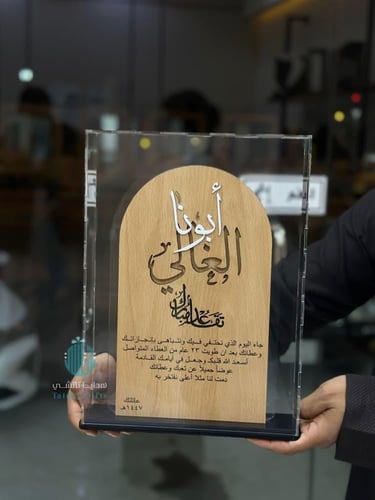 أبونا
الغالي
تقاعد مبارك
جاء اليوم الذي نحتفي فيك ونتباهى بإنجازاتك
وعطائك بعد ان طويت ٢٣ عام من العطاء المتواصل
أسعد الله قلبك وجعل في أيامك القادمة
عوضاً جميلاً عن تعبك وعطائك
دمت لنا مثلاً أعلى نفتخر به
عائلتك
١٤٤٧هـ